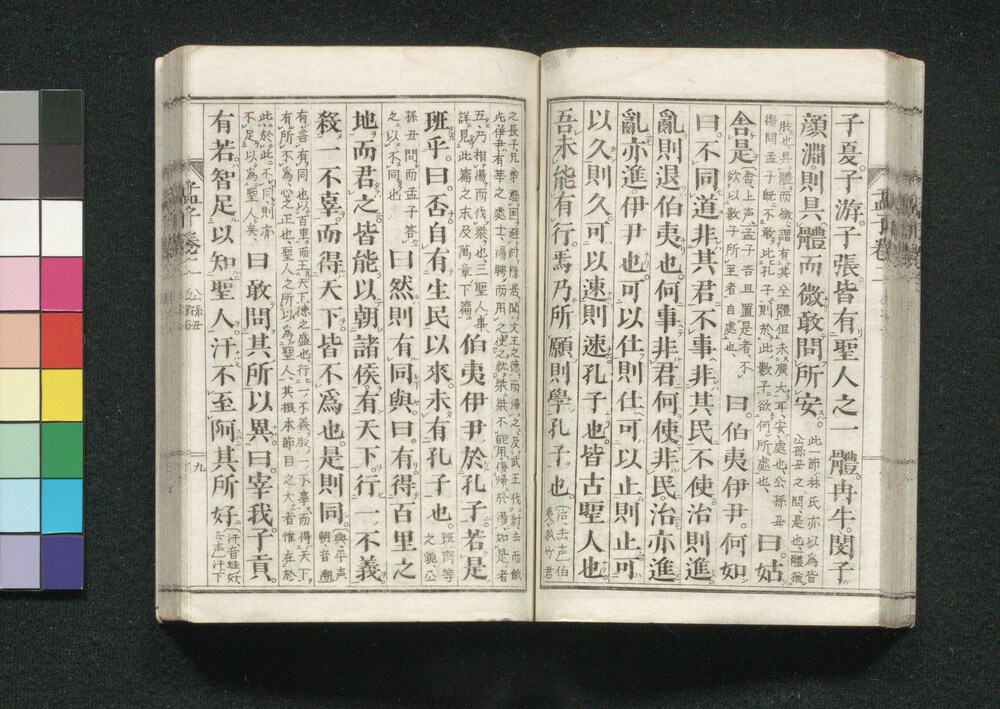 子夏。子游。子張皆有聖人之一體。冉牛。閔子
顏淵。則具體而微。敢問所安。此一節。林氏亦以爲皆
公孫丑之問。是也。一體猶
一肢也。具體而微。謂有其全體。但未廣大耳。安處也。公孫丑
復問孟子。既不敢比孔子。則於此數子。欲何所處也。曰。姑
舍是。舍。上聲。孟子言且置是者。不
欲以數子所至者自處也。曰。伯夷伊尹。何如
曰。不同道。非其君不事。非其民不使。治則進
亂則退。伯夷也。何事非君。何使非民。治亦進
亂亦進。伊尹也。可以仕則仕。可以止則止。可
以久則久。可以速則速。孔子也。皆古聖人也
吾未能有行焉。乃所願則學孔子也。治。去声。伯
夷。孤竹君
之長子。兄弟遜國。避紂隱居。聞文王之德而歸之。及武王伐紂。去而餓
死。伊尹有莘之處士。湯聘而用之。使之就桀。桀不能用。復歸於湯。如是者
五。乃相湯而伐桀也。三聖人事。
詳見此篇之末。及萬章下篇。伯夷伊尹於孔子。若是
班乎。曰。否。自有生民以來。未有孔子也。班。齊等
之貌。公
孫丑問。而孟子答
之以不同也。曰。然則有同與。曰。有。得百里之
地而君之。皆能以朝諸侯。有天下。行一不義。
殺一不辜。而得天下。皆不爲也。是則同。與。平声。
朝。音潮
有。言有同也。以百里而王天下。德之盛也。行一不義。殺一不辜。而得天下
有所不爲。心之正也。聖人之所以爲聖人。其根本節目之大者。惟在於
此。於此不同。則亦
不足以爲聖人矣。曰。敢問其所以異。曰。宰我。子貢。
有若。智足以知聖人。汙不至阿其所好。汙。音蛙。好。
去声。汙。下
孟子卷二
孟子卷二
公孫丑
九